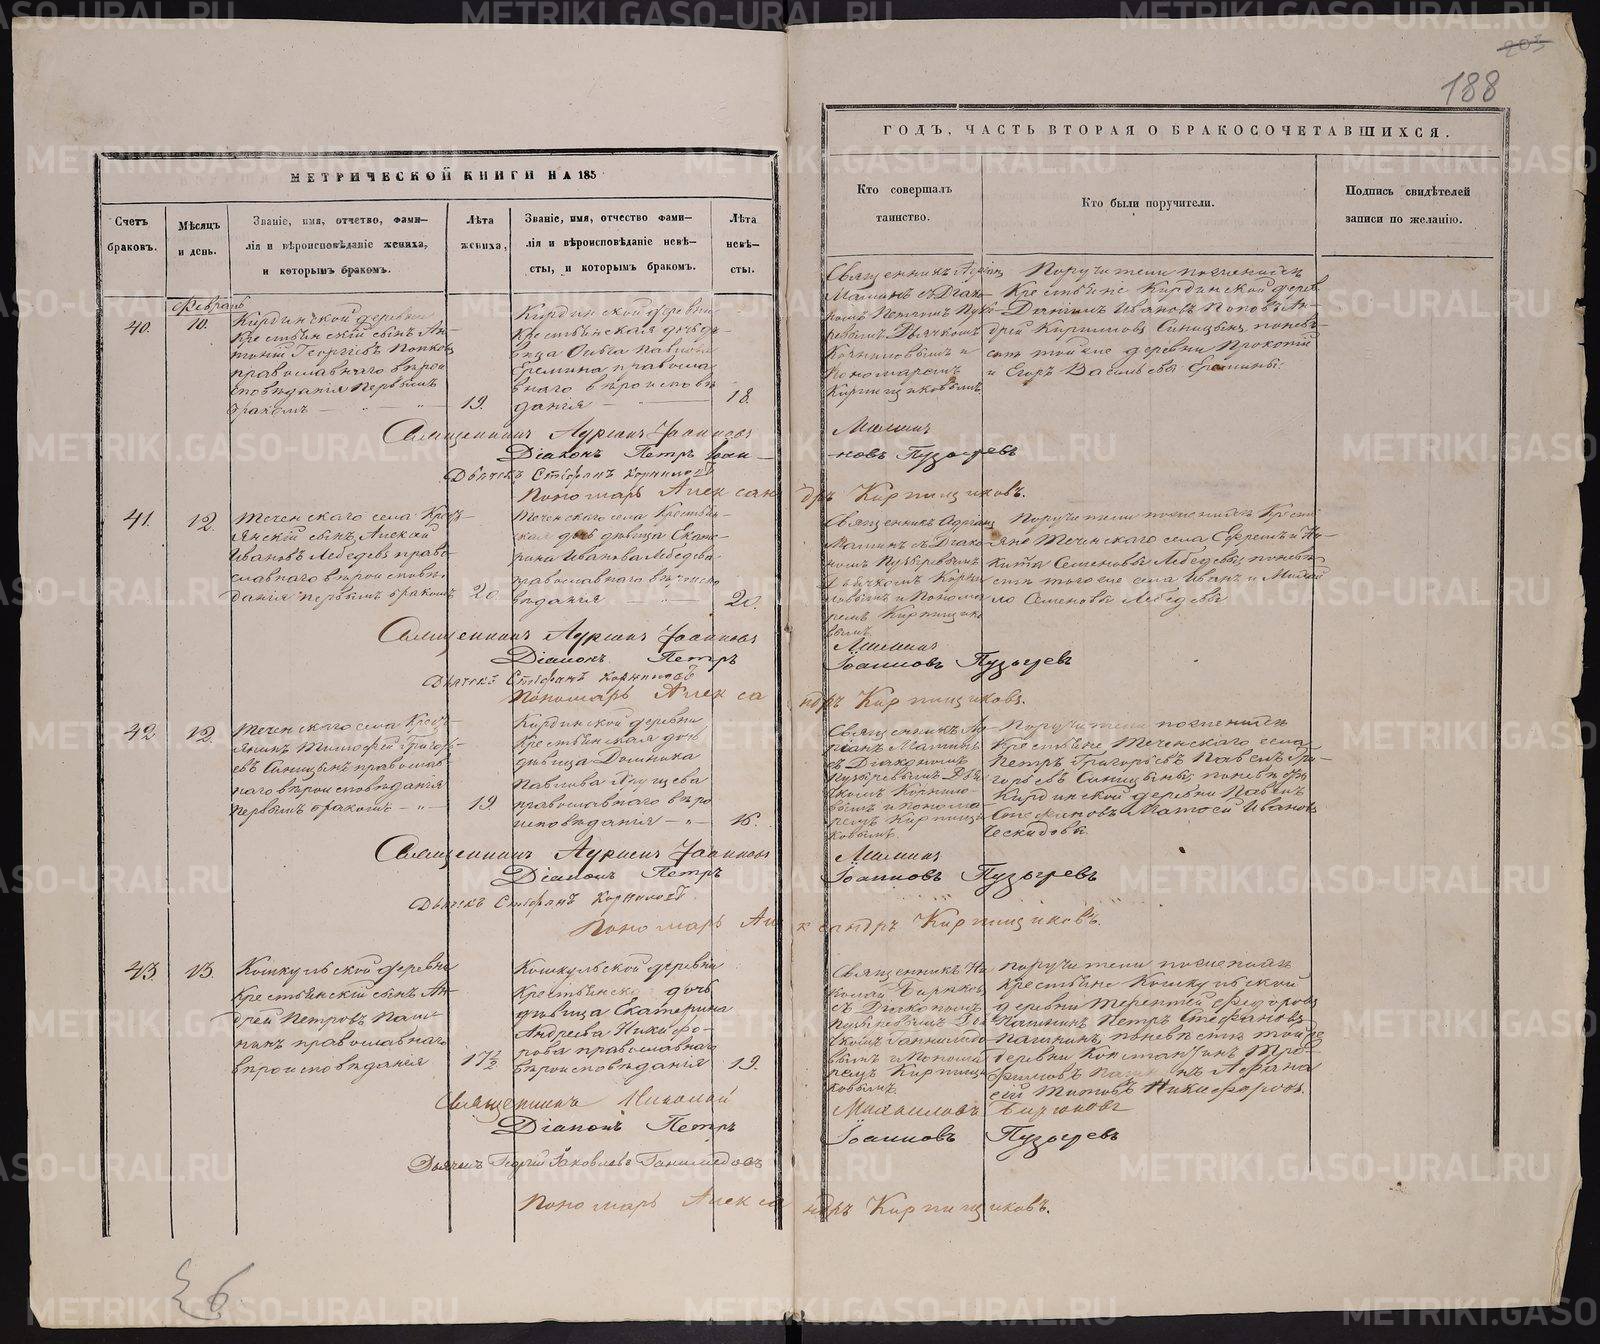 203
188
МЕТРИЧЕСКОЙ КНИГИ НА 185
ГОДЪ, ЧАСТЬ ВТОРАЯ О БРАКОСОЧЕТАВШИХСЯ.
Счетъ браковъ.
Мѣсяцъ и день.
Званіе, имя, отчетво, фами-
лія и вѣроисповѣданіе жениха,
и которымъ бракомъ.
Лѣта жениха,
Званіе, имя, отчество фами-
лія и вѣроисповѣданіе невѣ-
сты, и которымъ бракомъ.
Лѣта невѣ-
сты.
Кто совершалъ
таинство.
Кто были поручители.
Подпись свидѣтелей
записи по желанію.
Февраль
40.
10.
Кирдинской деревни
крестьянскій сынъ Ан-
тоній Георгіевъ Попковъ
православнаго вѣрои
сповѣданія первымъ
бракомъ
19.
Кирдинской деревни
крестьянская дочь дѣ-
вица Ольга Павлова
Еремина правосла
внаго вѣроисповѣ
данія
18.
Священникъ Адріанъ
Маминъ съ Діако-
номъ Петромъ Пузы-
ревымъ Дьячкомъ
Корниловымъ и
пономаремъ
Кирпищиковымъ.
Поручители по женихѣ
Крестьяне Кирдинской дерев
Даніилъ Ивановъ Поповъ Ан-
дрей Кириловъ Синицынъ, по невѣ-
стѣ той же деревни Прокопій
и Егоръ Васильевы Еремины.
Священникъ Адріанъ Іоанновъ Маминъ
Діаконъ Петръ Іоан-новъ Пузыревъ
Дьячекъ Стефанъ Корниловъ
Пономарь Александръ Кирпищиковъ.
41.
12.
Теченскаго села Крест-
янскій сынъ Алексій
Ивановъ Лебедевъ право-
славнаго вѣроисповѣ-
данія первымъ бракомъ
20.
Теченскаго села Крестьян-
ская дочь дѣвица Екате-
рина Иванова Лебедева
православнаго вѣроиспо
вѣданія
20.
Священникъ Адріанъ
Маминъ съ Діако-
номъ Пузыревымъ
Дьячкомъ Корни
ловымъ и Понома
ремъ Кирпищико
вымъ.
Поручители по женихѣ Кресть
яне Теченскаго села Ефремъ и Ни-
кита Семеновы Лебедевы, по невѣ-
стѣ того же села Иванъ и Михай
ло Семеновы Лебедевы
Священникъ Адріанъ Іоанновъ Маминъ
Діаконъ Петръ Іоанновъ Пузыревъ
Дьячекъ Стефанъ Корниловъ
Пономарь Александръ Кирпищиковъ.
42
12.
Теченскаго села Крест-
янинъ Тимофей Григорь-
евъ Синицынъ православ
наго вѣроисповѣданія
первымъ бракомъ
19
Кирдинской деревни
крестьянская дочь
дѣвица Домника
Павлова
православнаго вѣро
исповѣданія
16.
Священникъ Ад-
ріанъ Маминъ
съ Діакономъ
Пузыревымъ Дья
чкомъ Корнило-
вымъ и понома
ремъ Кирпищи
ковымъ.
Поручители по женихѣ
Крестьяне Теченскаго села
Петръ Григорьевъ Павелъ Гри-
горьевъ Синицыны, по невѣстѣ
Кирдинской деревни Павелъ
Стефановъ Матфей Ивановъ
Священникъ Адріанъ Іоанновъ Маминъ
Діаконъ Петръ Іоанновъ Пузыревъ
Дьячекъ Стефанъ Корниловъ
Пономарь Александръ Кирпищиковъ.
43
13.
Кошкульской деревни
крестьянскій сынъ Ан-
дрей Петровъ Паш-
нинъ православнаго
вѣроисповѣданія
17½
Кошкульской деревни
крестьянска дочь
дѣвица Екатерина
Андреева Никифо-
рова православнаго
вѣроисповѣданія
19.
Священникъ Ни-
колай Бирюковъ
съ Діакономъ
Пузыревымъ Дья
чкомъ Ганимедо
вымъ и понома
ремъ Кирпищи
ковымъ.
Поручители по женихѣ
Крестьяне Кошкульской
деревни Терентій Федоровъ
Пашнинъ Петръ Стефановъ
Пашнинъ, по невѣстѣ той же
деревни Константинъ Тро-
фимовъ Пашнинъ Афана
сій Титовъ Никифоровъ.
Священникъ Николай Михайловъ Бирюковъ
Діаконъ Петръ Іоанновъ Пузыревъ
Дьячекъ Георгій Яковлевъ Ганимедовъ
Пономарь Александръ Кирпищиковъ.
METRIKI.GASO-URAL.RU